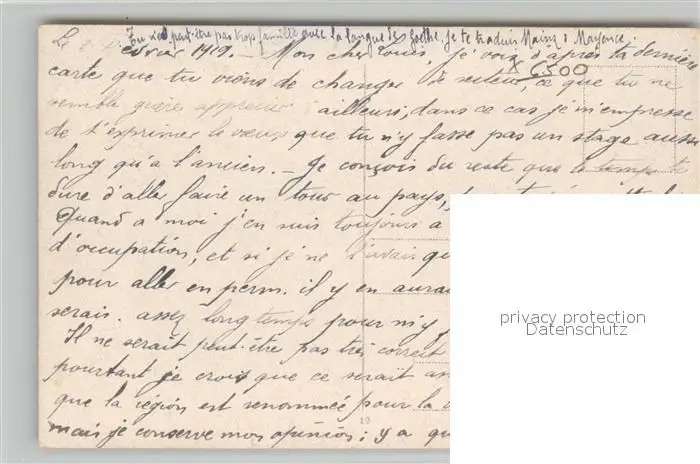 Tu n'es peut-être pas trop familier avec la langue de Goethe, je te traduis Mainz : Mayence.
Le 8 février 1919. - Mon cher Louis, je vois d'après ta dernière
X 6500
carte que tu viens de changer de secteur, ce que tu ne
semble guère apprécier ailleurs, dans ce cas je m'empresse
de t'exprimer le vœux que tu n'y fasse pas un stage aussi
long qu'à l'ancien. - Je conçois du reste que le temps te
dure d'aller faire un tour au pays,
Quand à moi j'en suis toujours à
d'occupation, et si je ne l'avais qu
pour aller en perm. il y en aurai
serais. assez longtemps pour m'y
Il ne serait peut-être pas très correct
pourtant je crois que ce serait as
que la région est renommée pour la
mais je conserve mon opinion ; y a qu
10
privacy protection
Datenschutz